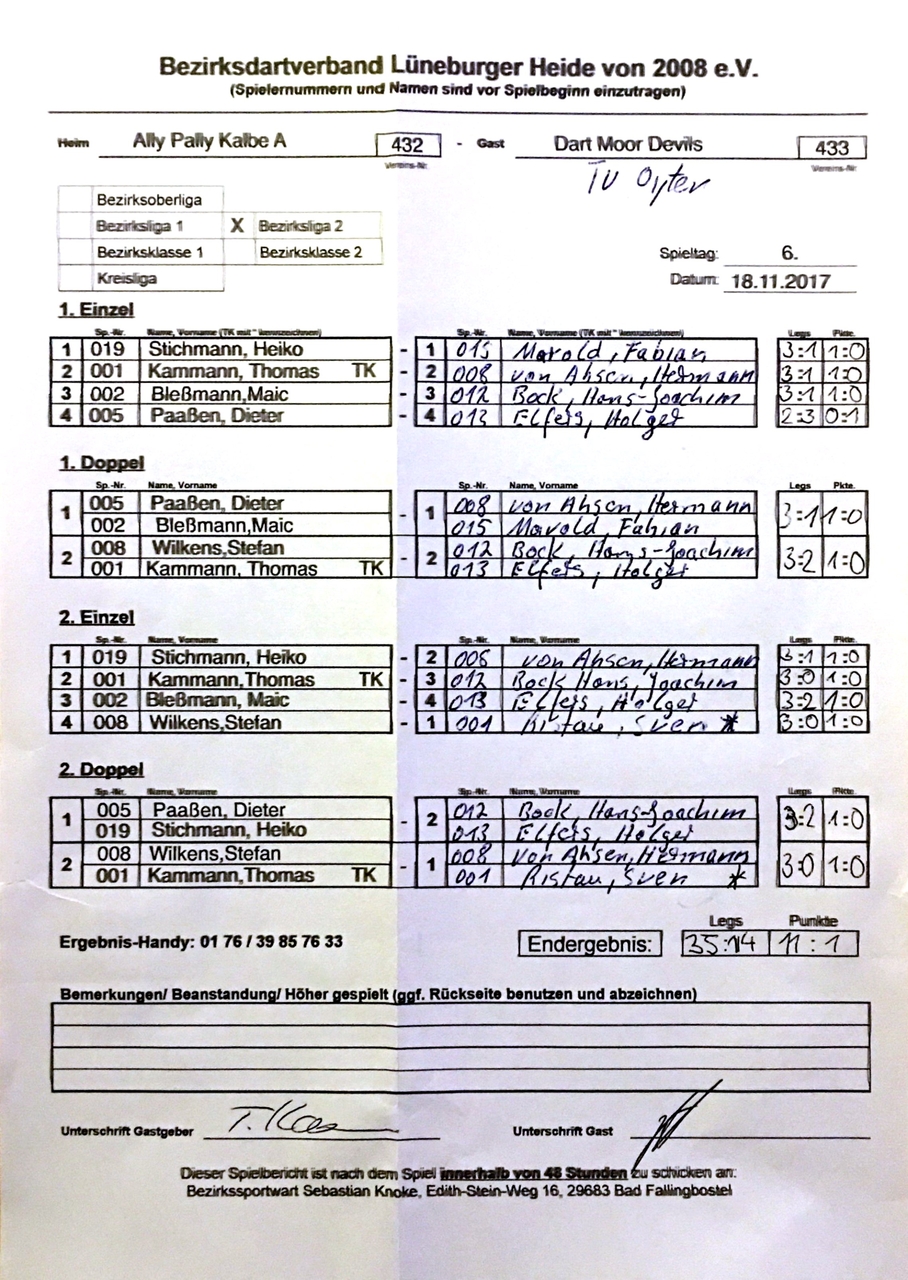 Bezirksdartverband Lüneburger Heide von 2008 e.V.
(Spielernummern und Namen sind vor Spielbeginn einzutragen)
Heim Ally Pally Kalbe A 432 - Gast Dart Moor Devils 433
Vereins-Nr. Vereins-Nr.
TV Oyter
Bezirksoberliga
Bezirksliga 1 X Bezirksliga 2
Bezirksklasse 1 Bezirksklasse 2
Kreisliga
Spieltag: 6.
Datum: 18.11.2017
1. Einzel
Sp.-Nr. Name, Vorname (TK mit * kennzeichnen) Sp.-Nr. Name, Vorname (TK mit * kennzeichnen) Legs Pkte.
1 019 Stichmann, Heiko - 1 015 Marold, Fabian 3:1 1:0
2 001 Kammann, Thomas TK - 2 008 von Ahsen, Hermann 3:1 1:0
3 002 Bleßmann,Maic - 3 012 Bock, Hans-Joachim 3:1 1:0
4 005 Paaßen, Dieter - 4 013 Elfers, Holger 2:3 0:1
1. Doppel
Sp.-Nr. Name, Vorname Sp.-Nr. Name, Vorname Legs Pkte.
1 005 Paaßen, Dieter - 1 008 von Ahsen, Hermann 3:1 1:0
002 Bleßmann,Maic 015 Marold, Fabian
2 008 Wilkens,Stefan - 2 012 Bock, Hans-Joachim 3:2 1:0
001 Kammann, Thomas TK 013 Elfers, Holger
2. Einzel
Sp.-Nr. Name, Vorname Sp.-Nr. Name, Vorname Legs Pkte.
1 019 Stichmann, Heiko - 2 008 von Ahsen, Hermann 3:1 1:0
2 001 Kammann,Thomas TK - 3 012 Bock Hans, Joachim 3:0 1:0
3 002 Bleßmann, Maic - 4 013 Elfers, Holger 3:2 1:0
4 008 Wilkens,Stefan - 1 001 Ristau, Sven * 3:0 1:0
2. Doppel
Sp.-Nr. Name, Vorname Sp.-Nr. Name, Vorname Legs Pkte.
1 005 Paaßen, Dieter - 2 012 Bock, Hans-Joachim 3:2 1:0
019 Stichmann, Heiko 013 Elfers, Holger
2 008 Wilkens,Stefan - 1 008 von Ahsen, Hermann 3:0 1:0
001 Kammann,Thomas TK 001 Ristau, Sven *
Legs Punkte
Ergebnis-Handy: 01 76 / 39 85 76 33 Endergebnis: 35:14 11:1
Bemerkungen/ Beanstandung/ Höher gespielt (ggf. Rückseite benutzen und abzeichnen)
Unterschrift Gastgeber Unterschrift Gast
Dieser Spielbericht ist nach dem Spiel innerhalb von 48 Stunden zu schicken an:
Bezirkssportwart Sebastian Knoke, Edith-Stein-Weg 16, 29683 Bad Fallingbostel